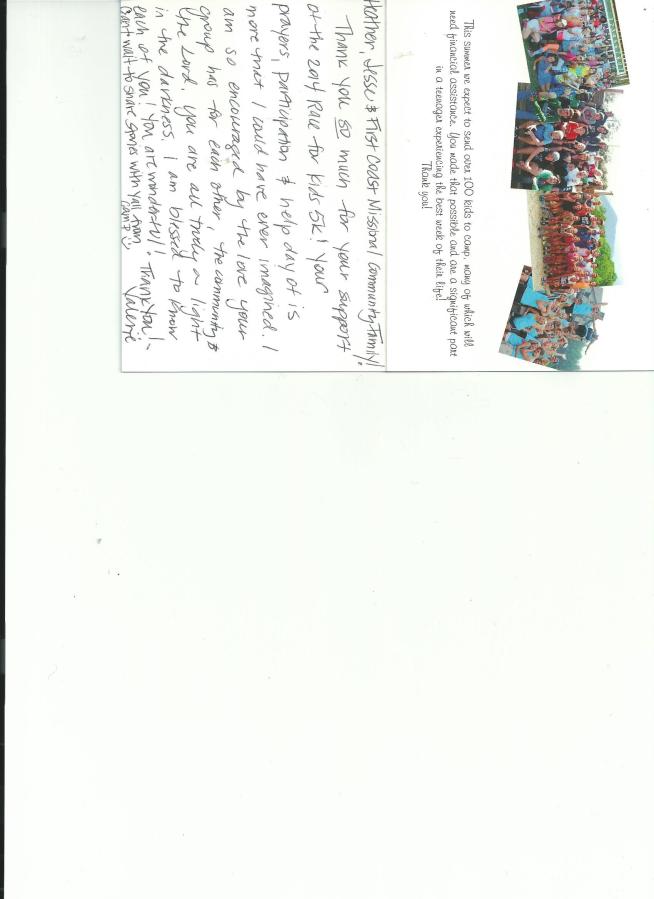 This summer we expect to send over 100 kids to camp, many of which will
need financial assistance. You made that possible and are a significant part
in a teenager experiencing the best week of their life!
Thank you!
Heather, Jesse & First Coast Missional Community Family!
Thank you so much for your support
at the 2014 Race for Kids 5k! Your
prayers, participation & help day of is
more that I could have ever imagined. I
am so encouraged by the love your
group has for each other, the community &
the Lord. You are all truly a light
in the darkness. I am blessed to know
each of you! You are wonderful! Thank You! -
Can't wait to share stories with Yall from
camp
Valerie